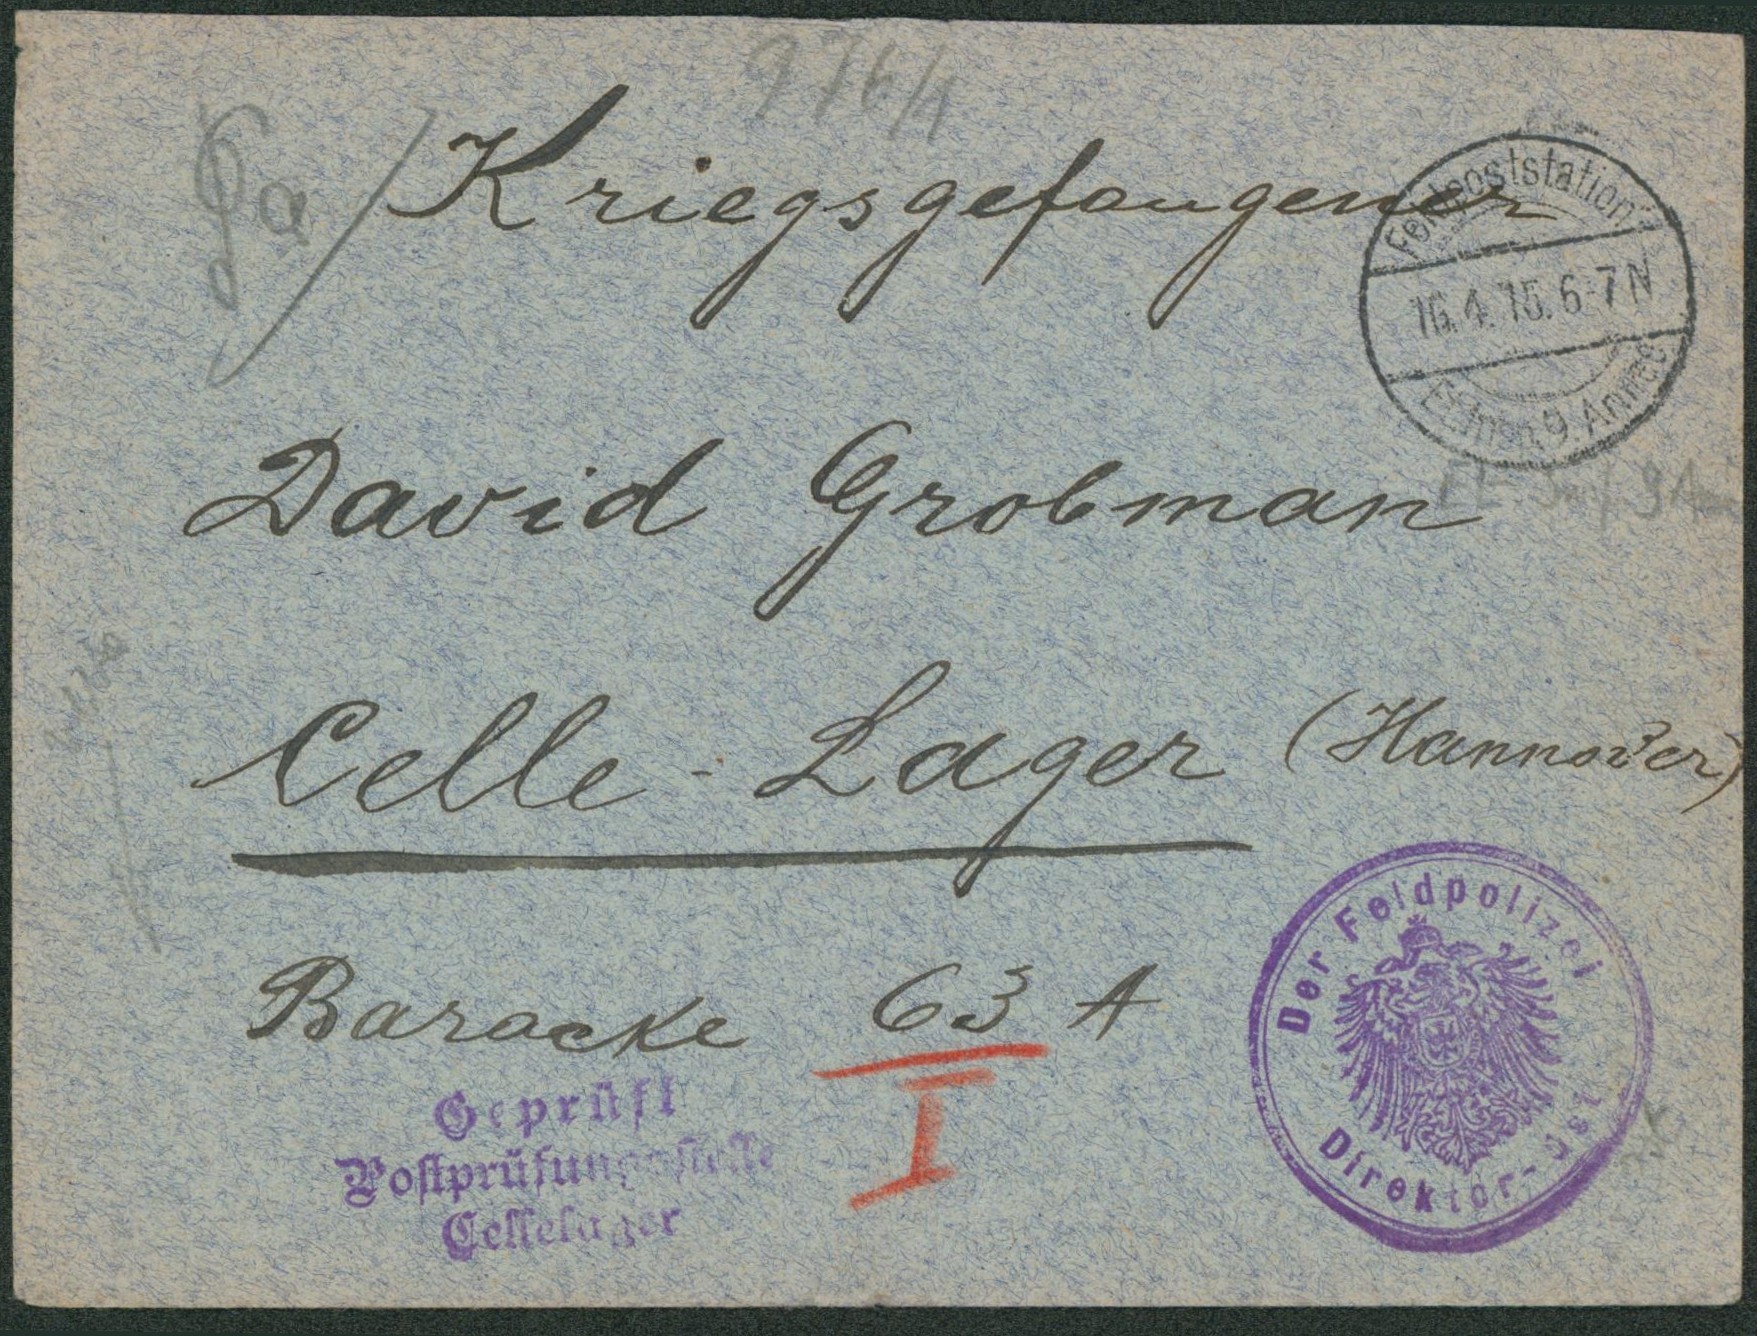 976/4
Kriegsgefangener
Feldpoststation
16.4.15. 6-7 N
Et. Insp. 9. Armee
David Grobman
Celle-Lager (Hannover)
Baracke 63 A
I
Geprüft
Postprüfungsstelle
Cellelager
Der Feldpolizei
Direktor-Ost